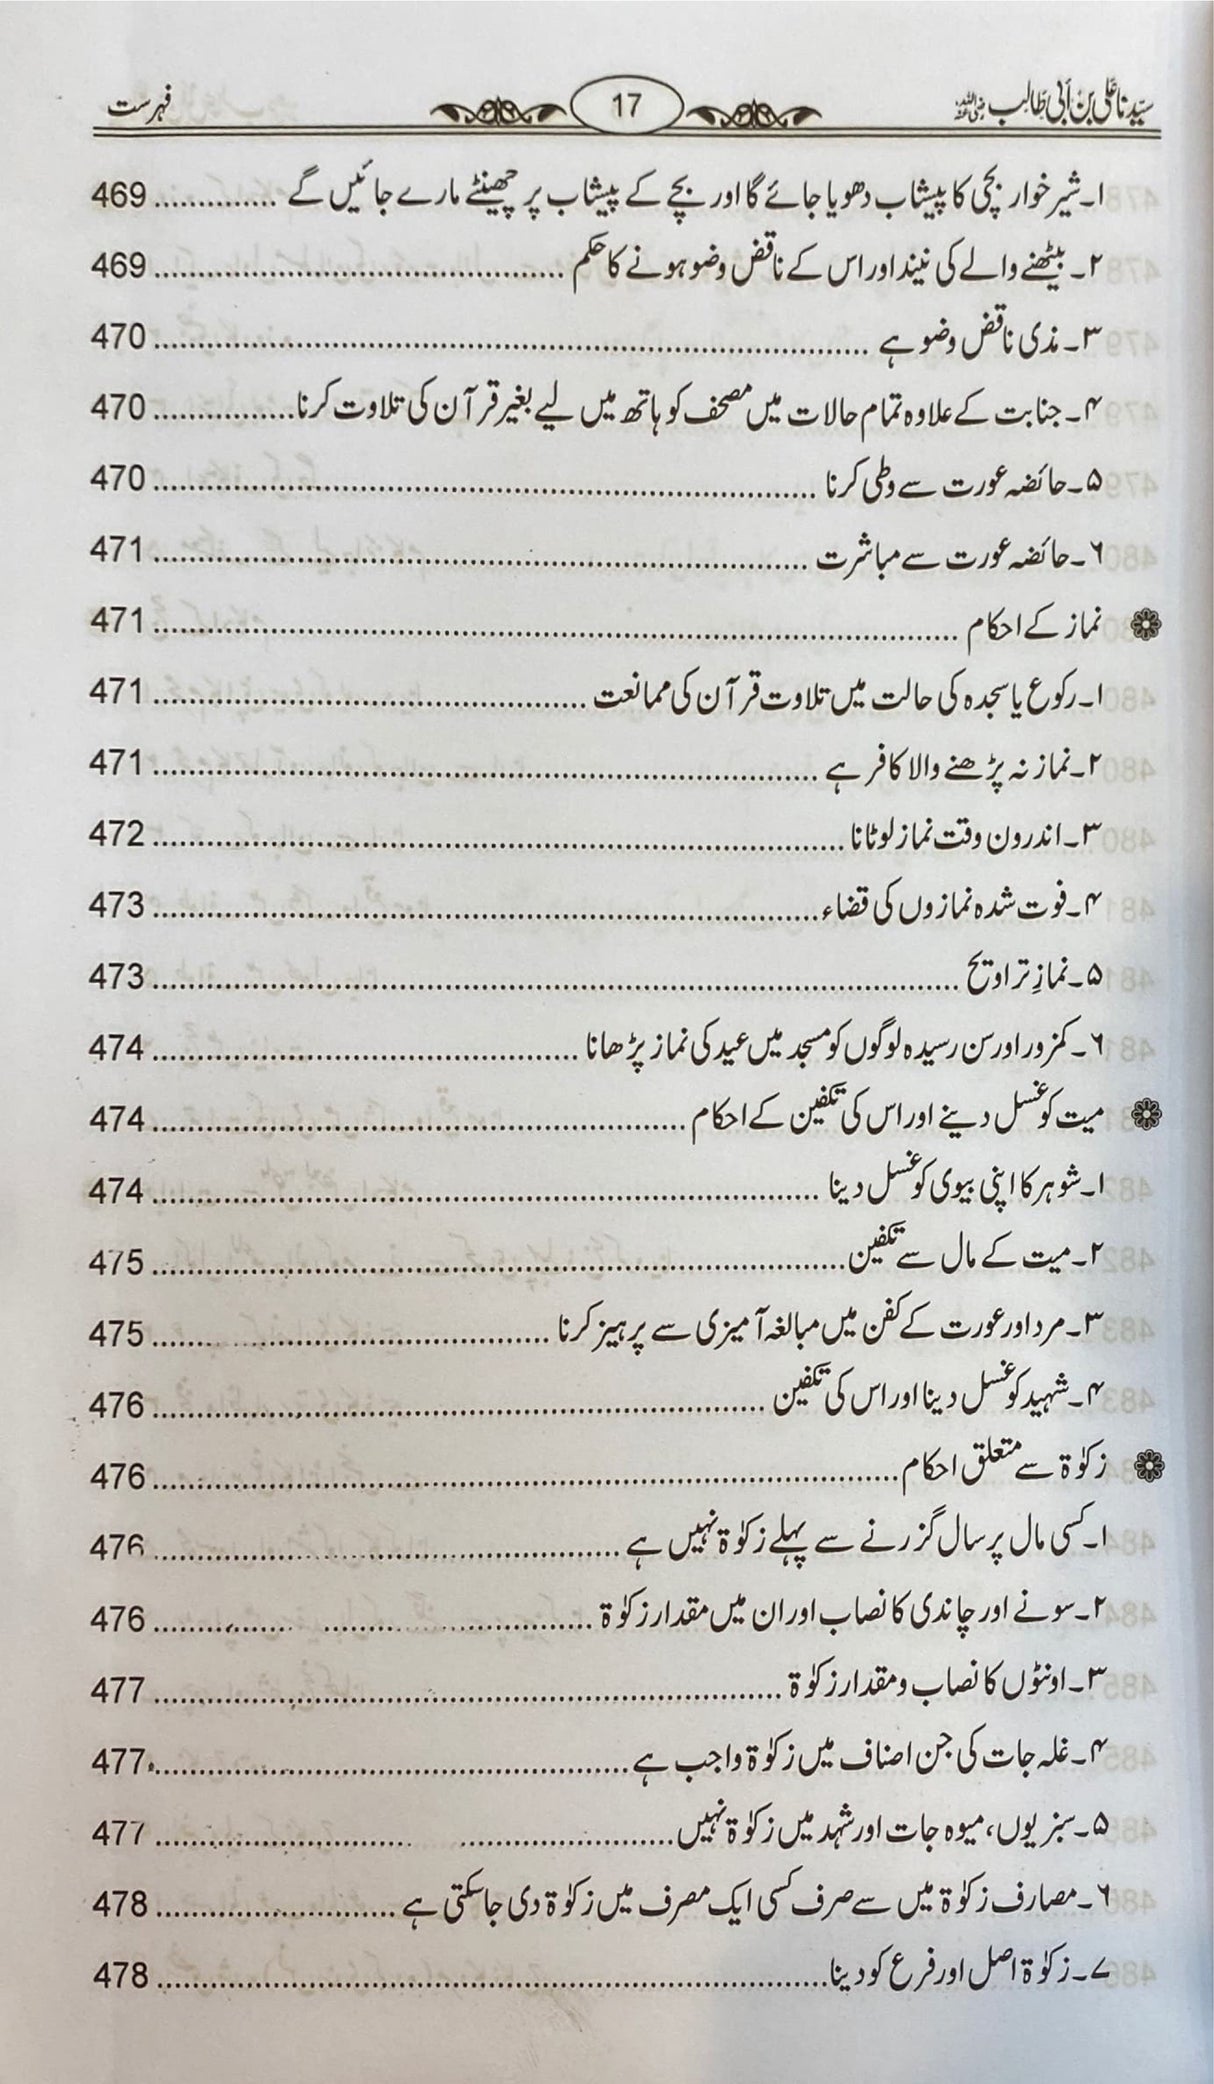 سیدنا علی بن أبی طالب رضی اللہ عنہ 17 فہرست
۱۔ شیر خوار بچی کا پیشاب دھویا جائے گا اور بچے کے پیشاب پر چھینٹے مارے جائیں گے ............. 469
۲۔ بیٹھنے والے کی نیند اور اس کے ناقض وضو ہونے کا حکم ............. 469
۳۔ مذی ناقض وضو ہے ............. 470
۴۔ جنابت کے علاوہ تمام حالات میں مصحف کو ہاتھ میں لیے بغیر قرآن کی تلاوت کرنا ............. 470
۵۔ حائضہ عورت سے وطی کرنا ............. 470
۶۔ حائضہ عورت سے مباشرت ............. 471
نماز کے احکام ............. 471
۱۔ رکوع یا سجدہ کی حالت میں تلاوت قرآن کی ممانعت ............. 471
۲۔ نماز نہ پڑھنے والا کافر ہے ............. 471
۳۔ اندرون وقت نماز لوٹانا ............. 472
۴۔ فوت شدہ نمازوں کی قضاء ............. 473
۵۔ نمازِ تراویح ............. 473
۶۔ کمزور اور سن رسیدہ لوگوں کو مسجد میں عید کی نماز پڑھانا ............. 474
میت کو غسل دینے اور اس کی تکفین کے احکام ............. 474
۱۔ شوہر کا اپنی بیوی کو غسل دینا ............. 474
۲۔ میت کے مال سے تکفین ............. 475
۳۔ مرد اور عورت کے کفن میں مبالغہ آمیزی سے پرہیز کرنا ............. 475
۴۔ شہید کو غسل دینا اور اس کی تکفین ............. 476
زکوٰۃ سے متعلق احکام ............. 476
۱۔ کسی مال پر سال گزرنے سے پہلے زکوٰۃ نہیں ہے ............. 476
۲۔ سونے اور چاندی کا نصاب اور ان میں مقدار زکوٰۃ ............. 476
۳۔ اونٹوں کا نصاب و مقدار زکوٰۃ ............. 477
۴۔ غلہ جات کی جن اصناف میں زکوٰۃ واجب ہے ............. 477
۵۔ سبزیوں، میوہ جات اور شہد میں زکوٰۃ نہیں ............. 477
۶۔ مصارف زکوٰۃ میں سے صرف کسی ایک مصرف میں زکوٰۃ دی جاسکتی ہے ............. 478
۷۔ زکوٰۃ اصل اور فرع کو دینا ............. 478